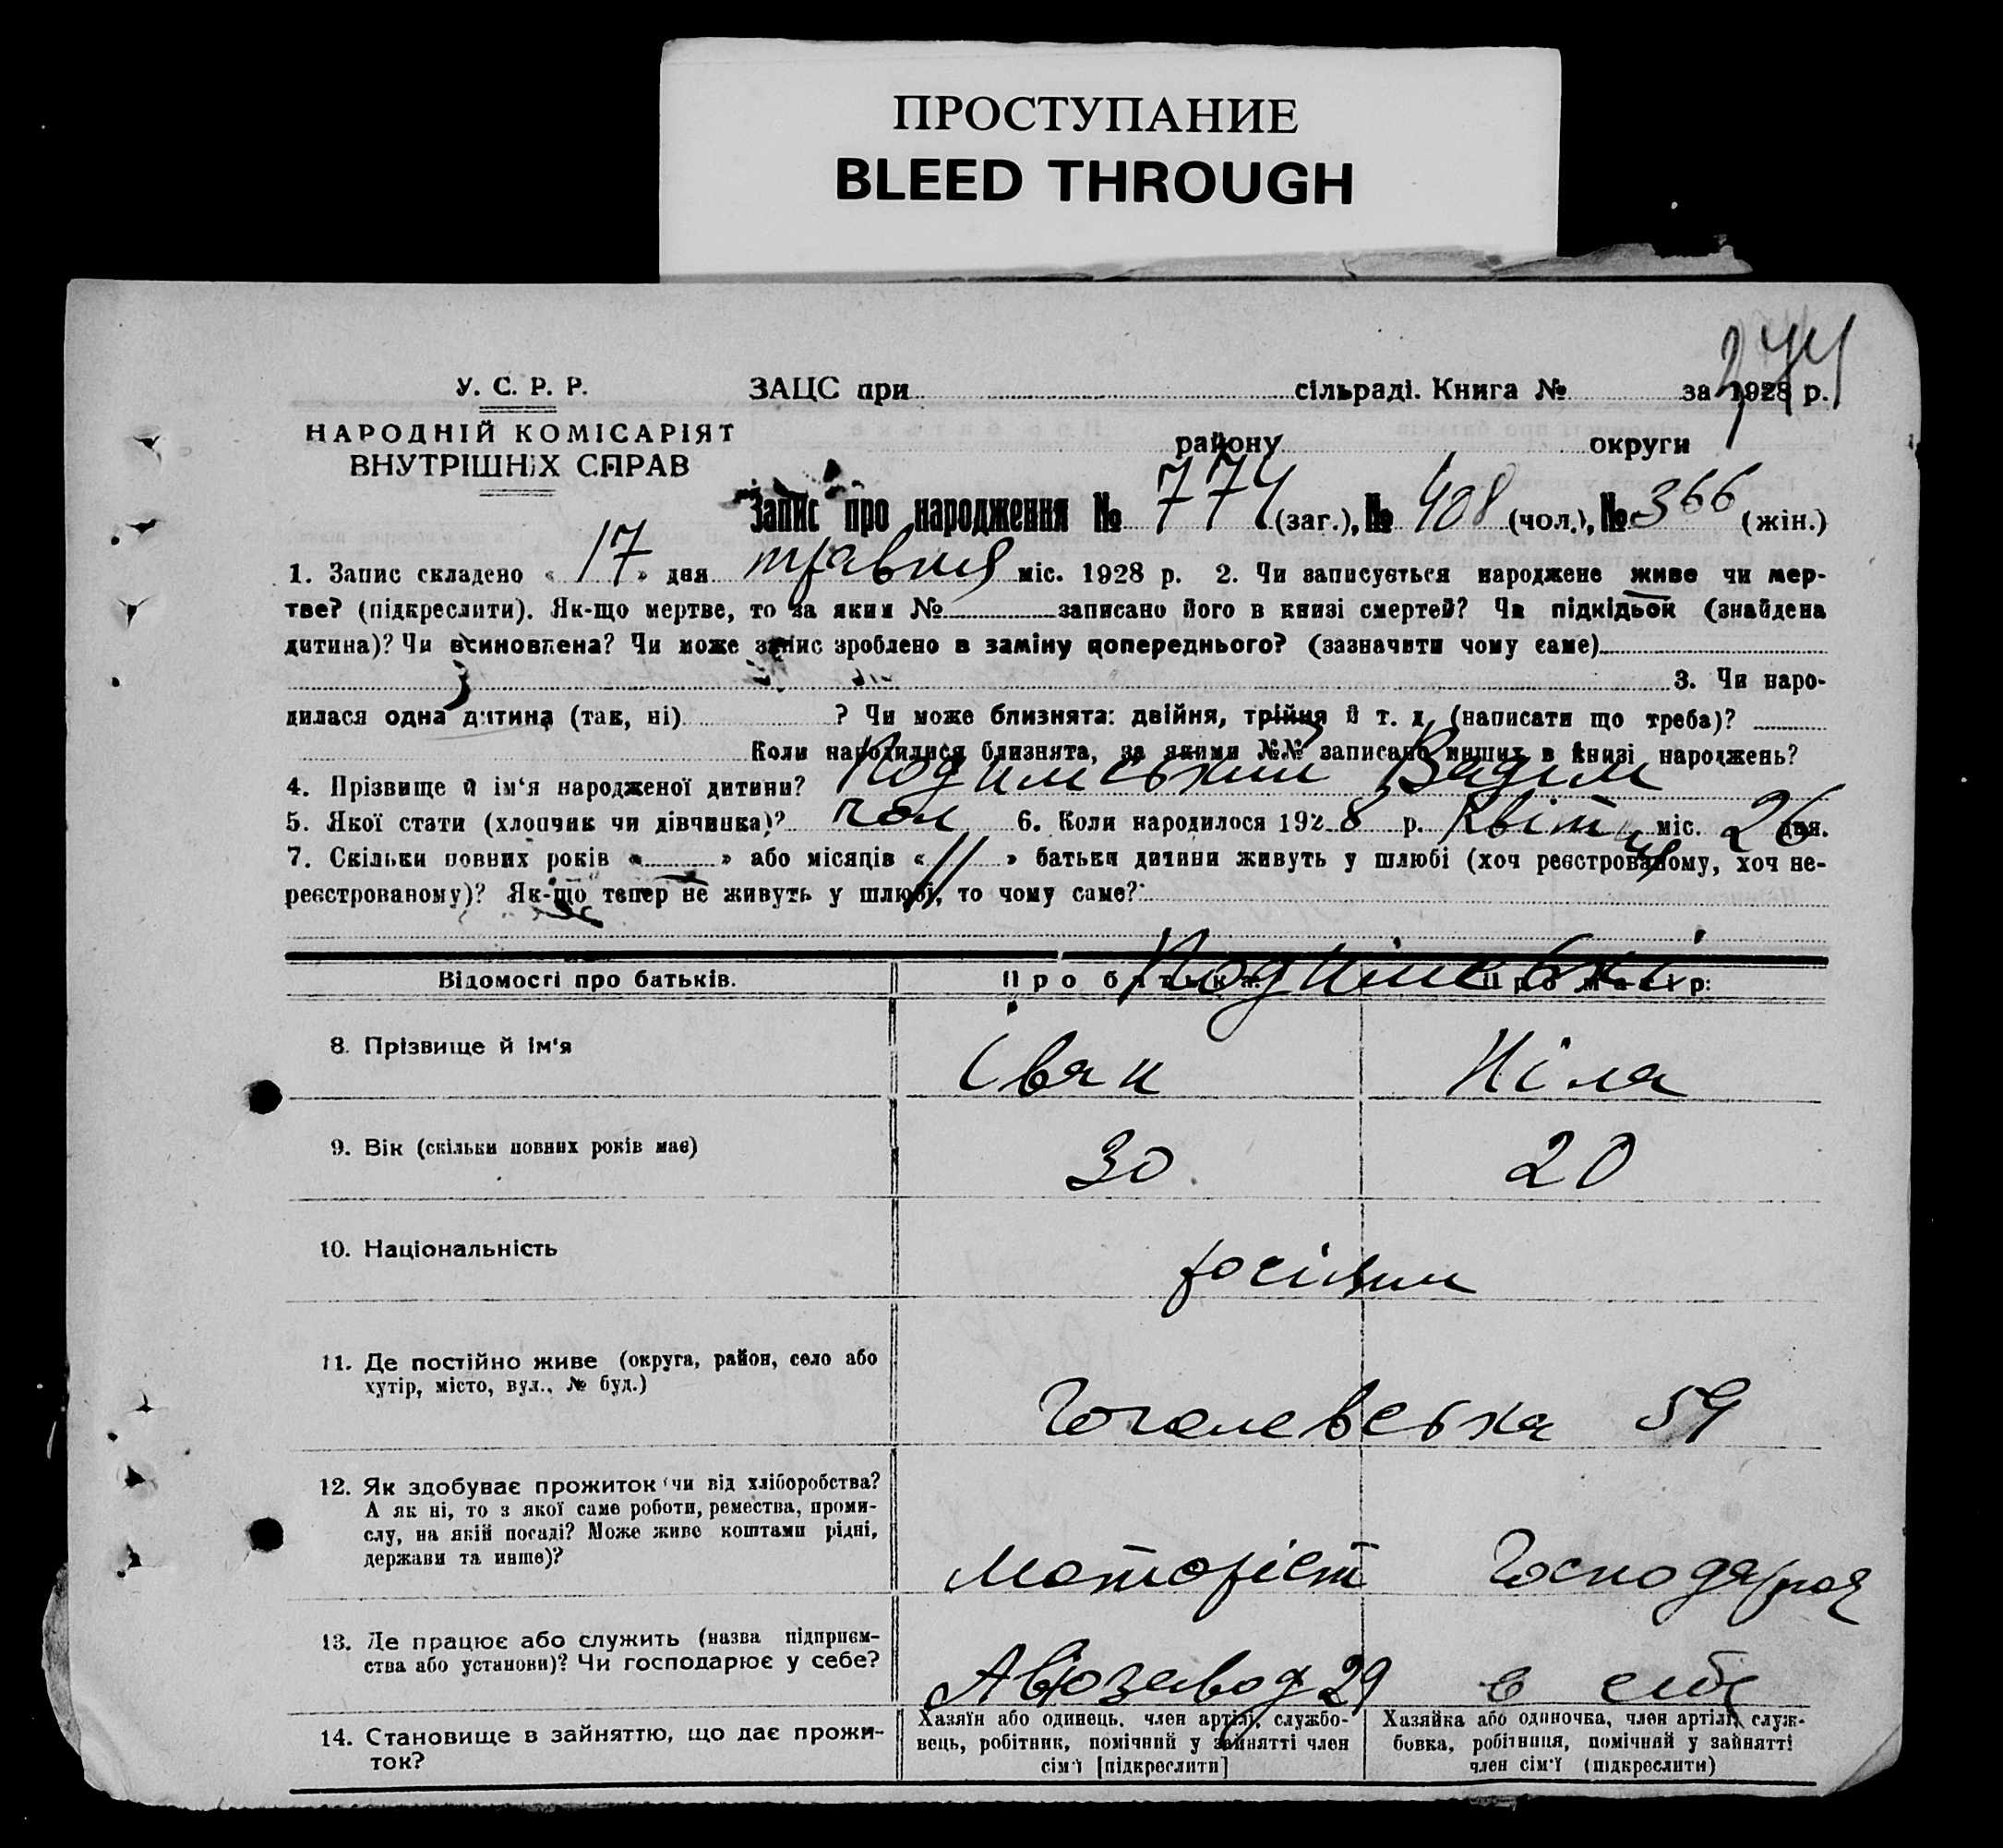 ПРОСТУПАНИЕ
BLEED THROUGH
У. С. Р. Р.
НАРОДНІЙ КОМІСАРІЯТ
ВНУТРІШНІХ СПРАВ
ЗАЦС при сільраді. Книга № за 1928 р.
району округи
Запис про народження № 774 (заг.), № 408 (чол.), № 366 (жін.)
1. Запис складено « 17 » дня травня міс. 1928 р. 2. Чи записується народжене живе чи мер-
тве? (підкреслити). Як-що мертве, то за яким № записано його в книзі смертей? Чи підкідьок (знайдена
дитина)? Чи всиновлена? Чи може запис зроблено в заміну попереднього? (зазначити чому саме)
3. Чи наро-
дилася одна дитина (так, ні) ? Чи може близнята: двійня, трійня й т. д. (написати що треба)?
Коли народилися близнята, за якими №№ записано инших в книзі народжень?
4. Прізвище й ім‘я народженої дитини? Подимський Вадим
5. Якої стати (хлопчик чи дівчинка)? чол 6. Коли народилося 1928 р. Квітня міс. 26 дня.
7. Скільки повних років « » або місяців « 11 » батьки дитини живуть у шлюбі (хоч реєстрованому, хоч не-
реєстрованому)? Як-що тепер не живуть у шлюбі, то чому саме?
Відомості про батьків. Про батька: Про матір:
Подимські
8. Прізвище й ім‘я Іван Ніла
9. Вік (скільки повних років має) 30 20
10. Національність росіяни
11. Де постійно живе (округа, район, село або
хутір, місто, вул., № буд.)
Гоголевська 59
12. Як здобуває прожиток (чи від хліборобства?
А як ні, то з якої саме роботи, ремества, проми-
слу, на якій посаді? Може живе коштами рідні,
держави та инше)?
моторіст Господарка
13. Де працює або служить (назва підприєм-
ства або установи)? Чи господарює у себе?
Автозавод 29 в себе
14. Становище в зайняттю, що дає прожи-
ток?
Хазяїн або одинець, член артілі, службо-
вець, робітник, помічний у зайнятті член
сім‘ї [підкреслити]
Хазяйка або одиночка, член артілі, служ-
бовка, робітниця, помічний у зайнятті
член сім‘ї (підкреслити)